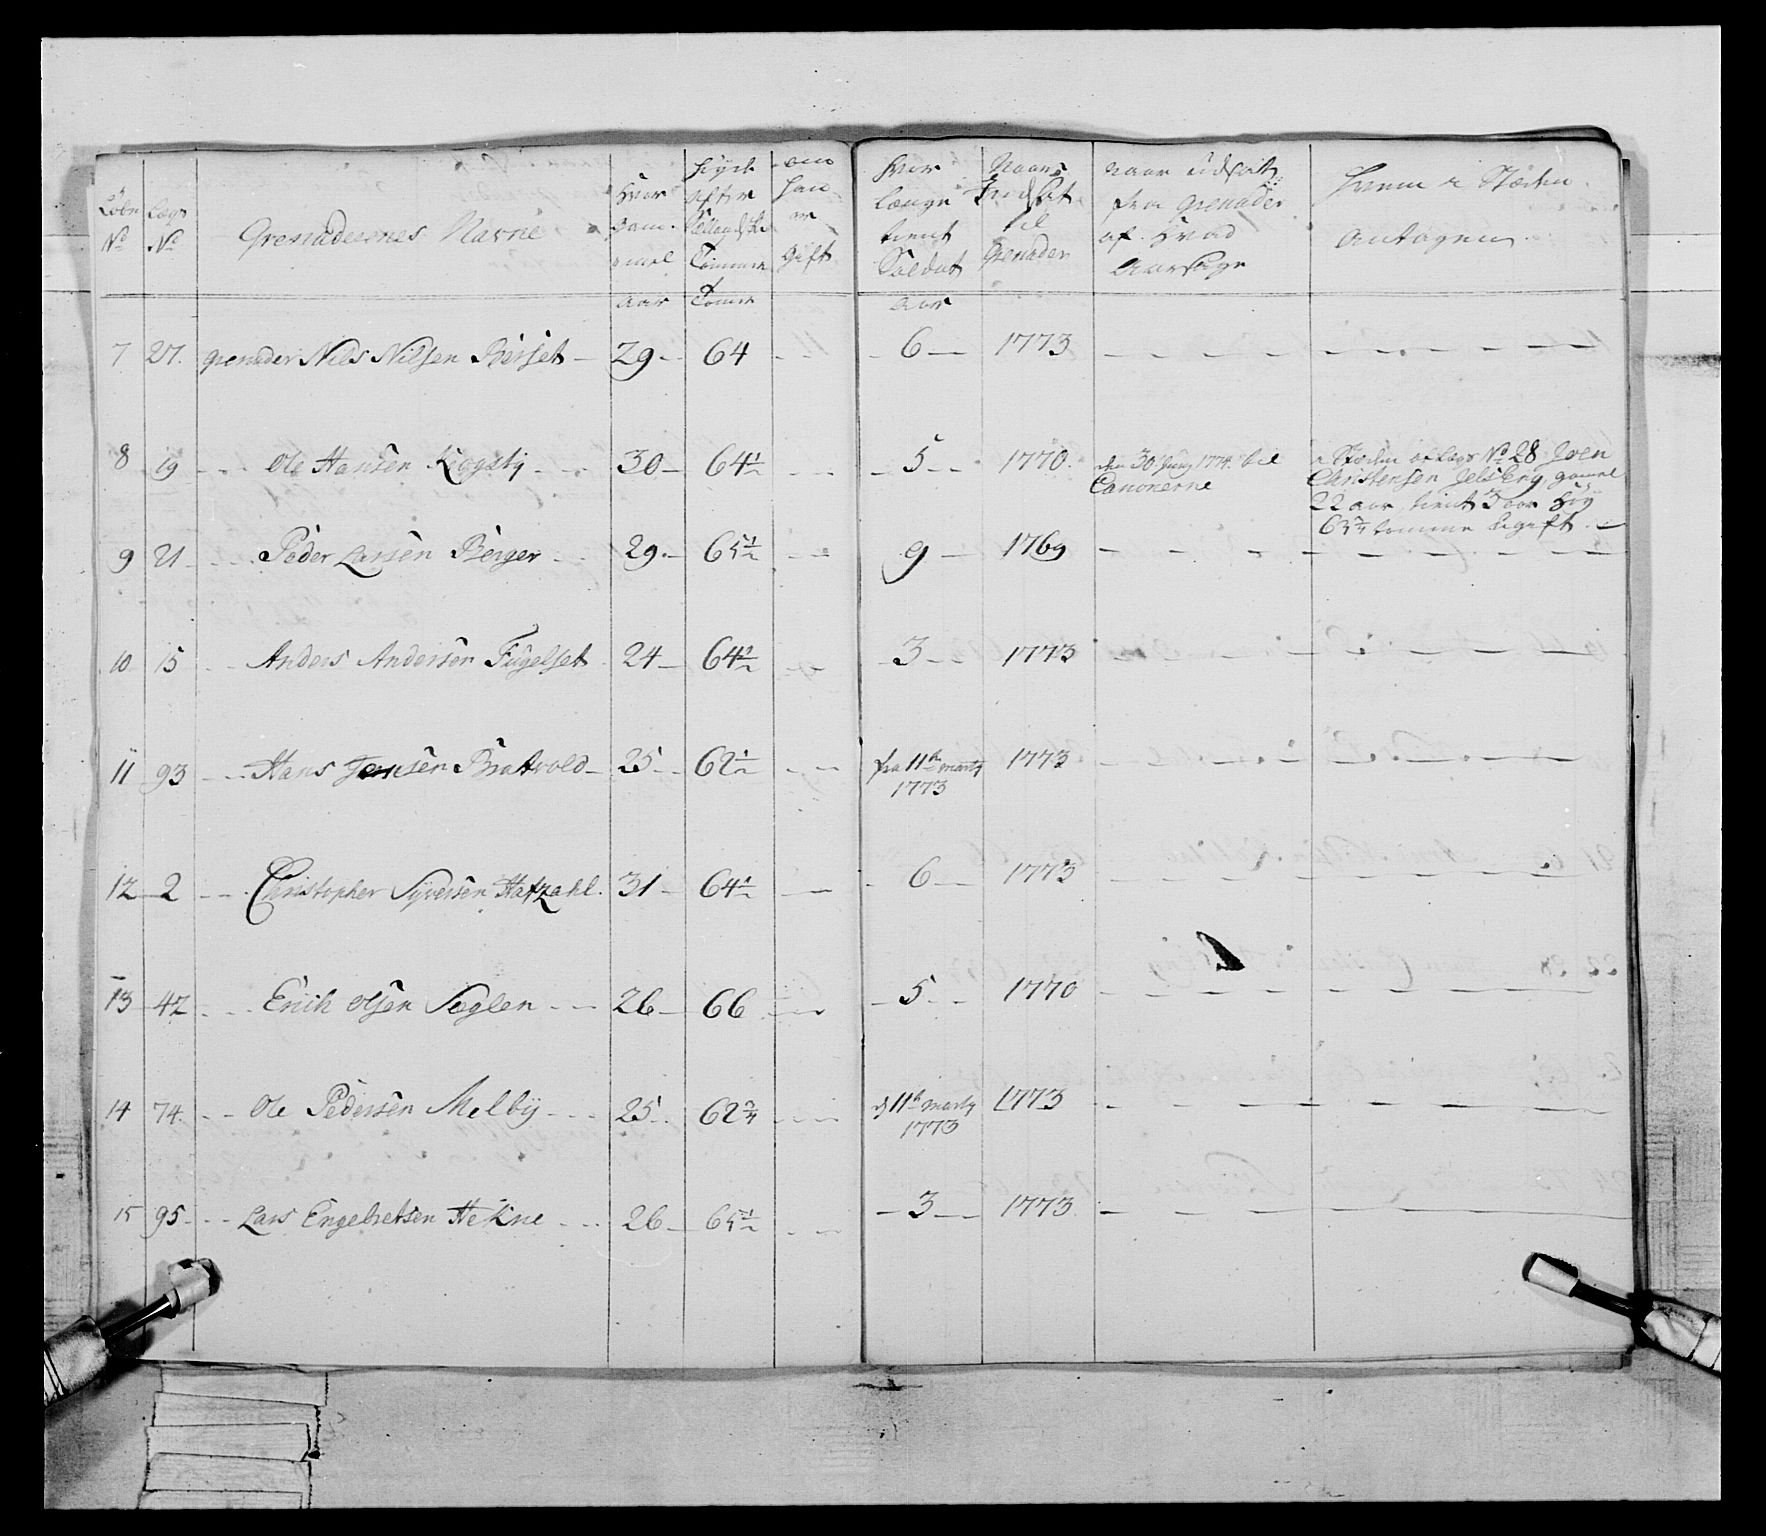 Løbe N.º | Lægs N.º | Grenaderernes Navne | Hvor gammel | Høyde efter Sællandske Tommer | om han er Gift | hvor længe tient Soldat | Naar Indsat til Grenader | naar udsat fra Grenader af hvad Aarsage | Hvem i Stæden Antagen
aar | Tomer | aar
7 27. Grenader Nils Nilsen Berset 29 64 6 1773
8 19 Ole Hansen 30 64½ 5 1770. den 30 Juny 1774 til Canonerne
i Stæden af Lægs N.º 28 Joen
Christensen Jelseng, gamel
22 aar, tient 3 aar høy
63¾ tomme ugift
9 21 Peder Larsen Berger 29. 65½ 9 1769
10 15 Anders Andersen Fugelset 24 64½ 3 1773
11 93 Hans Jensen Bratvold 25 62½ fra 11te marty 1773 1773
12 2 Christopher Syversen Hafzahl. 31 64½ 6 1773
13 42 Erich Olsen Soglen 26 66 5 1770
14 74. Ole Pedersen Melbÿ 25 62¾ d 11te marty 1773 1773
15 95 Lars Engebretsen Hekne 26 65½ 3 1773